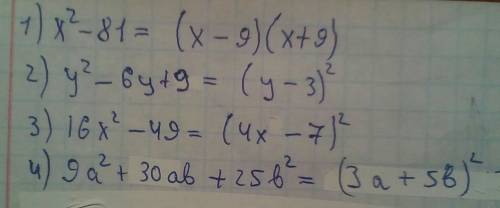 1) x² - 81 = (x - 9)(x + 9)
2) y² - 6y + 9 = (y - 3)²
3) 16x² - 49 = (4x - 7)²
4) 9a² + 30ab + 25b² = (3a + 5b)²